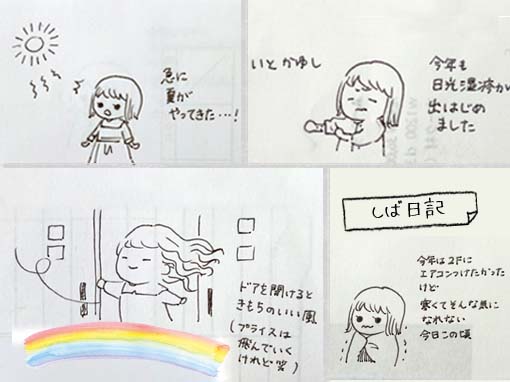 急に
夏が
やってきた…!
いとかゆし
今年も
日光湿疹が
出はじめ
ました
ドアを開けると
きもちのいい風
(プライスは
飛んでいく
けれど笑)
しば日記
今年は2Fに
エアコンつけたかった
けど
寒くてそんな気に
なれない
今日この頃